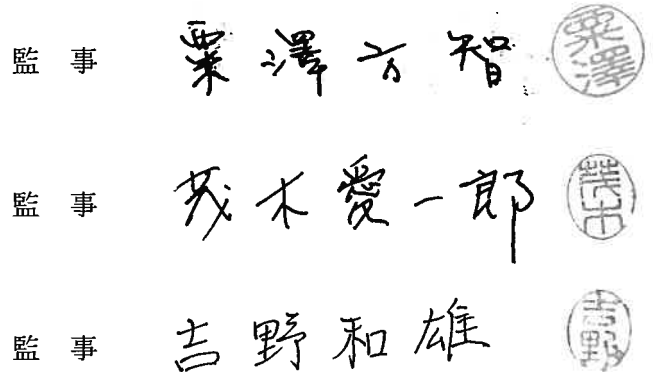 監事 粟澤方智 粟澤
監事 茂木愛一郎 茂木
監事 吉野和雄 吉野